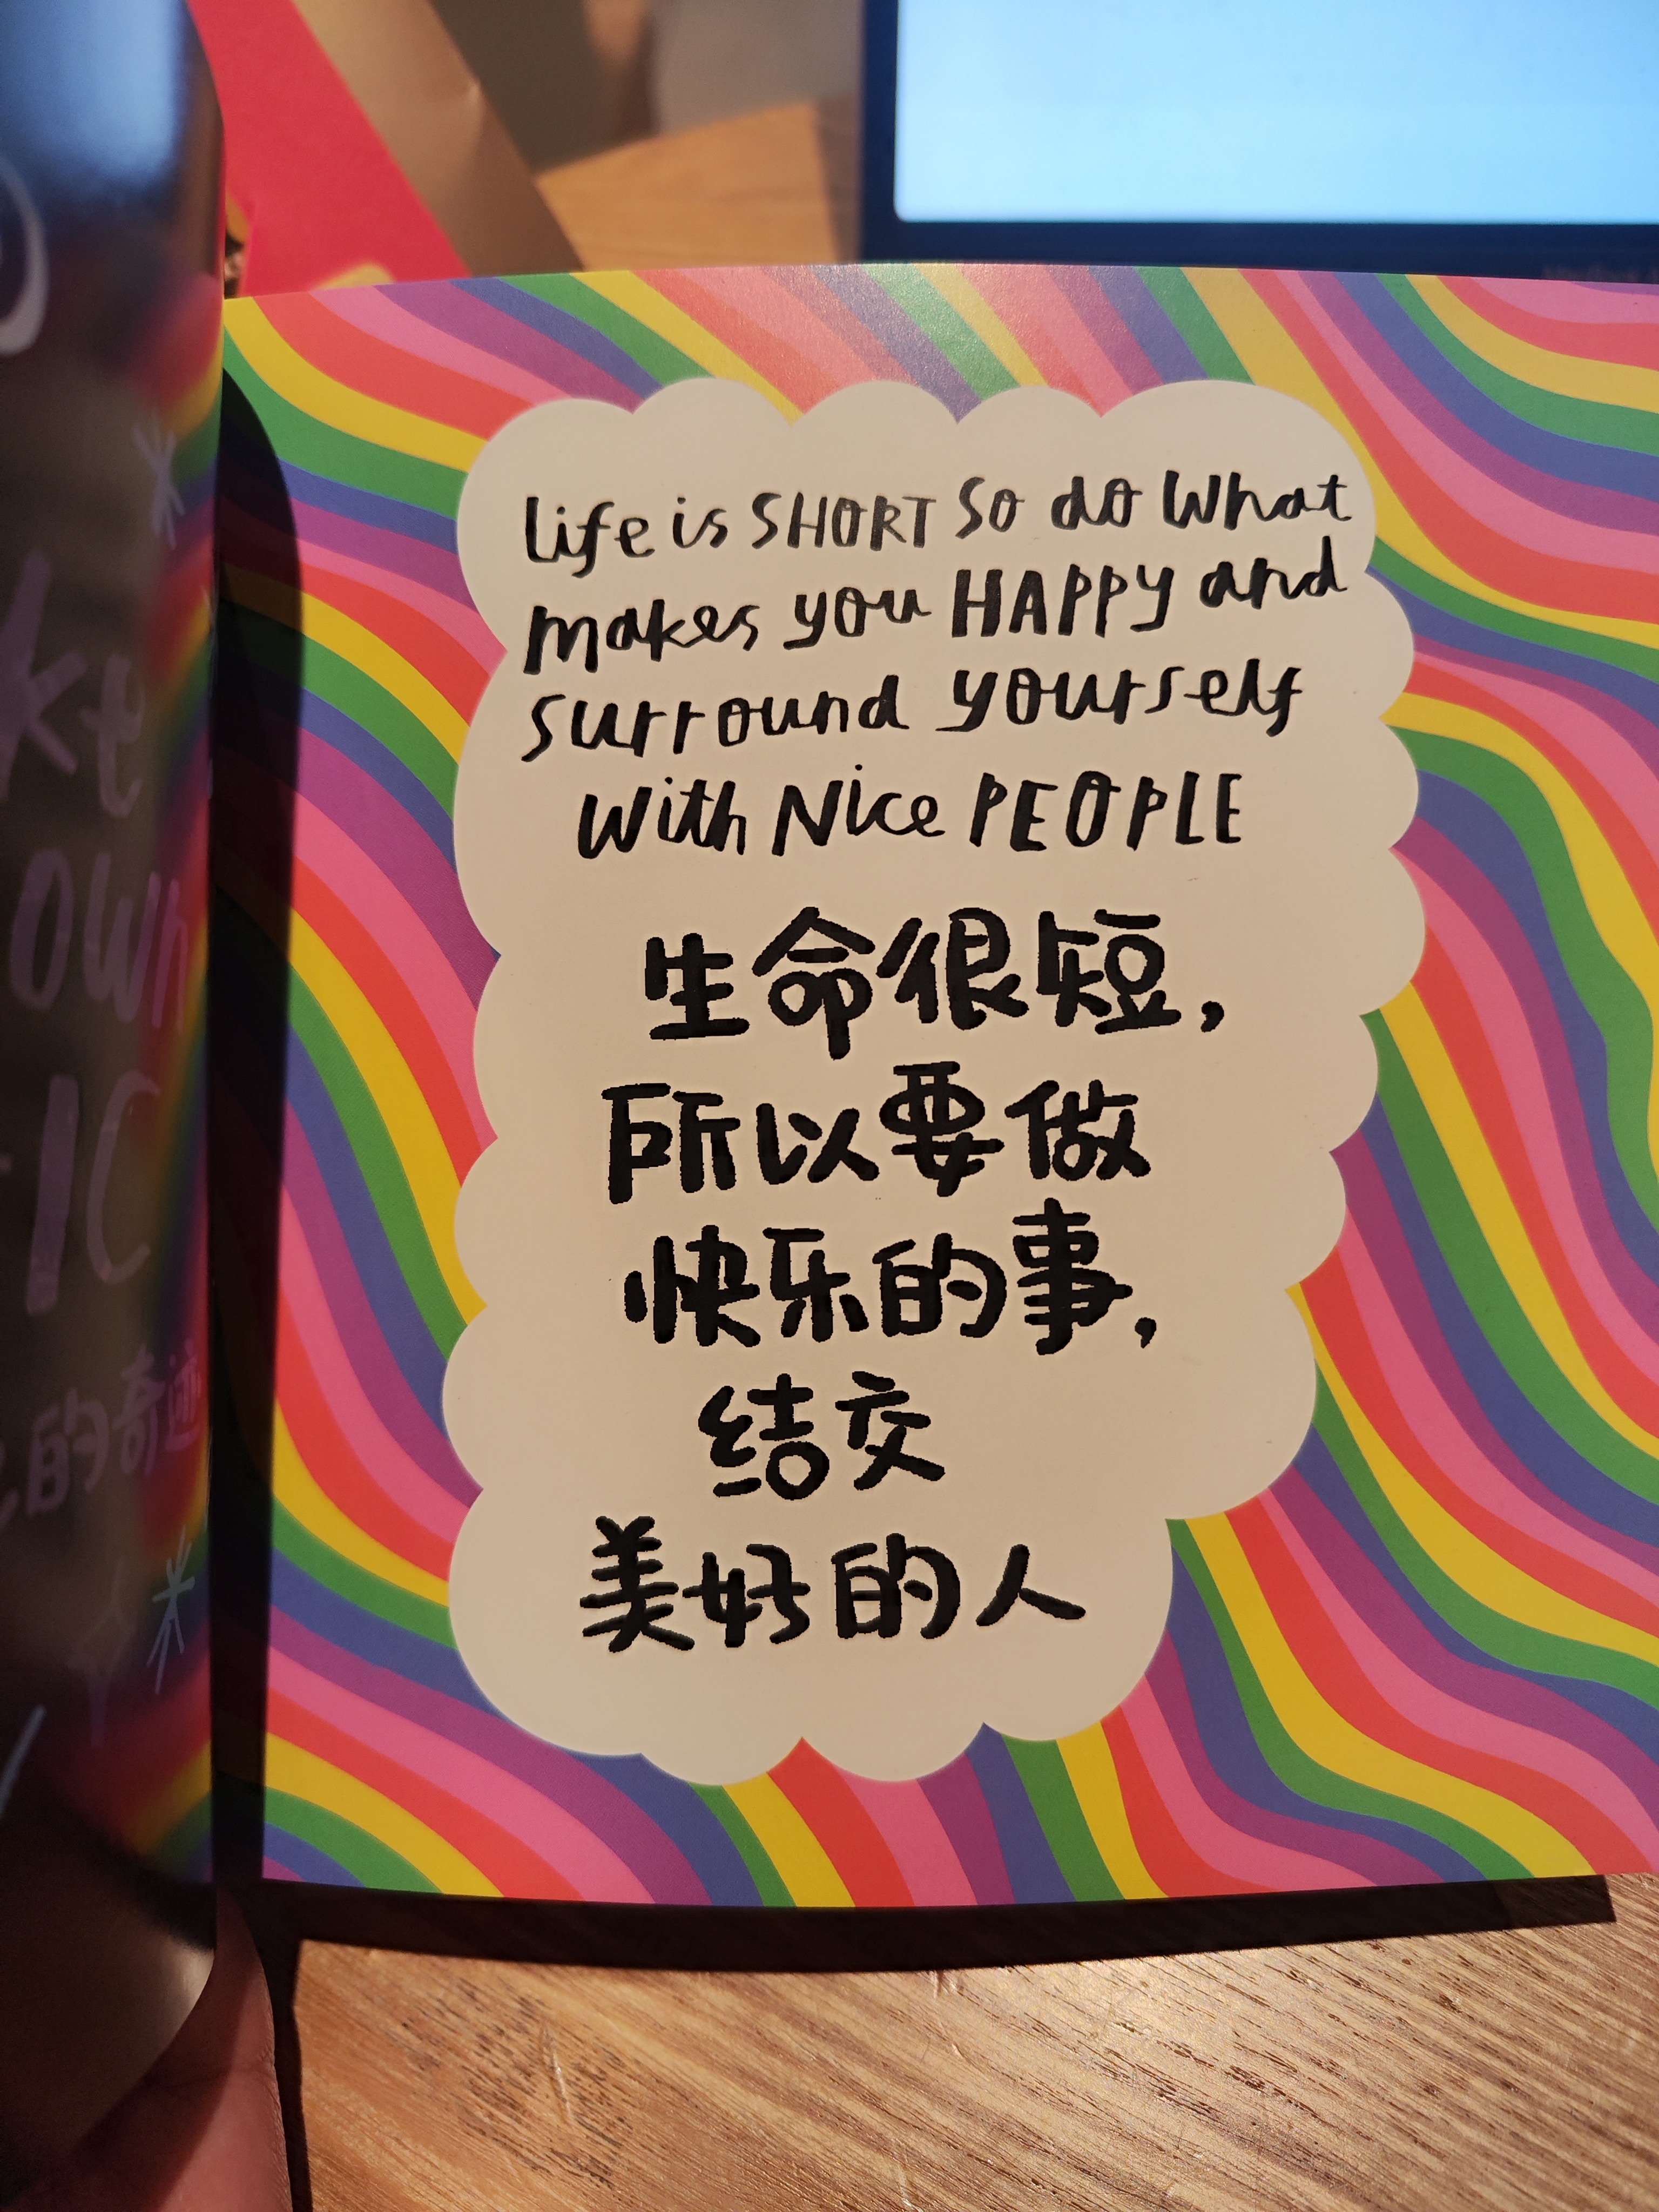 Life is SHORT So do What
makes you HAPPY and
surround yourself
With Nice PEOPLE
生命很短，
所以要做
快乐的事，
结交
美好的人
own
的奇迹